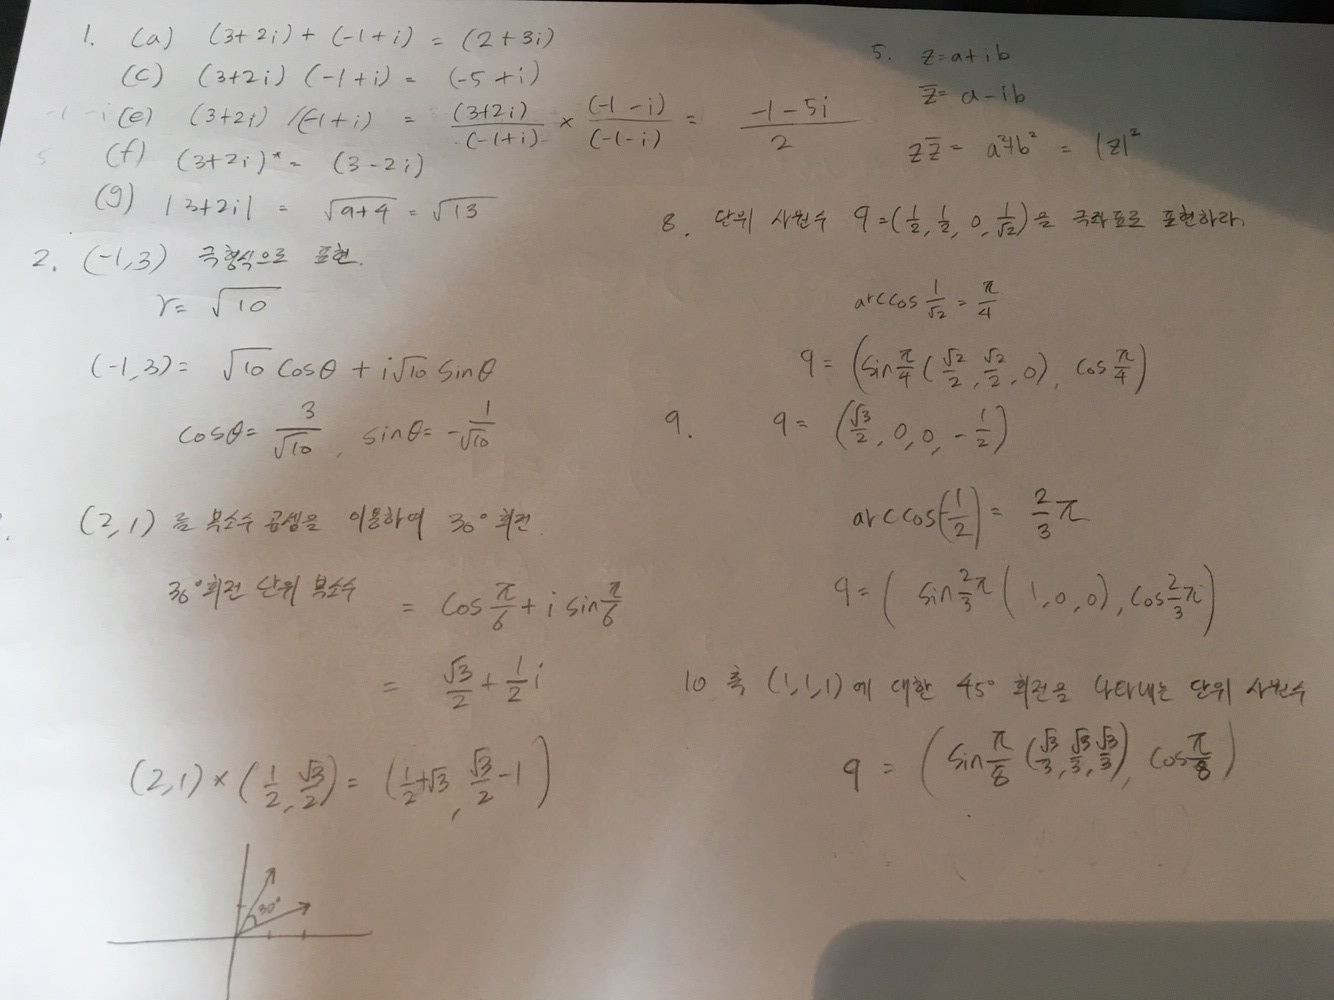 1. (a) (3+2i) + (-1+i) = (2+3i)
(c) (3+2i) (-1+i) = (-5+i)
(e) (3+2i) /(-1+i) = (3+2i)/(-1+i) × (-1-i)/(-1-i) = -1-5i/2
(f) (3+2i)* = (3-2i)
(g) |3+2i| = √9+4 = √13
2. (-1,3) 극형식으로 표현.
r= √10
(-1,3) = √10 cosθ + i√10 sinθ
cosθ= 3/√10, sinθ= -1/√10
(2,1) 를 복소수 곱셈을 이용하여 30° 회전
30°회전 단위 복소수 = cos π/6 + i sin π/6
= √3/2 + 1/2 i
(2,1) × (1/2, √3/2) = (1/2+√3, √3/2-1)
30°
5. z=a+ib
z̅= a-ib
zz̅ = a²+b² = |z|²
8. 단위 사원수 q=(1/2, 1/2, 0, 1/√2)을 극좌표로 표현하라.
arccos 1/√2 = π/4
q= (sin π/4 (√2/2, √2/2, 0), cos π/4)
9. q= (√3/2, 0, 0, -1/2)
arccos(-1/2) = 2/3 π
q= ( sin 2/3 π ( 1,0,0), cos 2/3 π)
10 축 (1,1,1)에 대한 45° 회전을 나타내는 단위 사원수
q = (sin π/8 (√3/3, √3/3, √3/3), cos π/8)